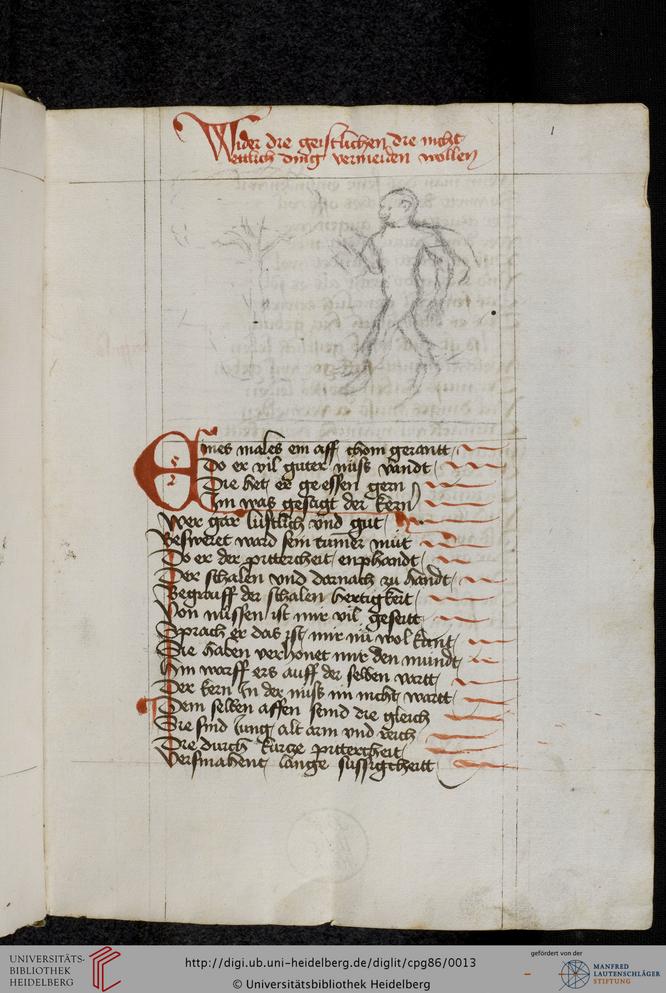 1
Wider die geistlichen die nicht
weltlich ding vermeiden wollen
Eines males ein aff chom gerantt
Do er vil guter nüss vandt
Die het er geessen gern
Im was gesagt der kern
Wer gar lüstlich vnd gut
Besweret ward sein tumer müt
Do er der pittercheit enphandt
Der schalen vnd darnach zu handt
Begraiff der schalen hertigkeit
Von nüssen ist mir vil geseitt
Sprach er das ist mir nü wol kant
Sie haben verhönet mir den mundt
Hin warff ers auff der selben vartt
Der kern in der nüss im nicht wartt
Dem selben affen seind die gleich
Sie sind iung alt arm vnd reich
Die durch kürcze pittercheit
Versmahent lange sussigcheitt
UNIVERSITÄTS-
BIBLIOTHEK
HEIDELBERG
http://digi.ub.uni-heidelberg.de/diglit/cpg86/0013
© Universitätsbibliothek Heidelberg
gefördert von der
MANFRED
LAUTENSCHLÄGER
STIFTUNG